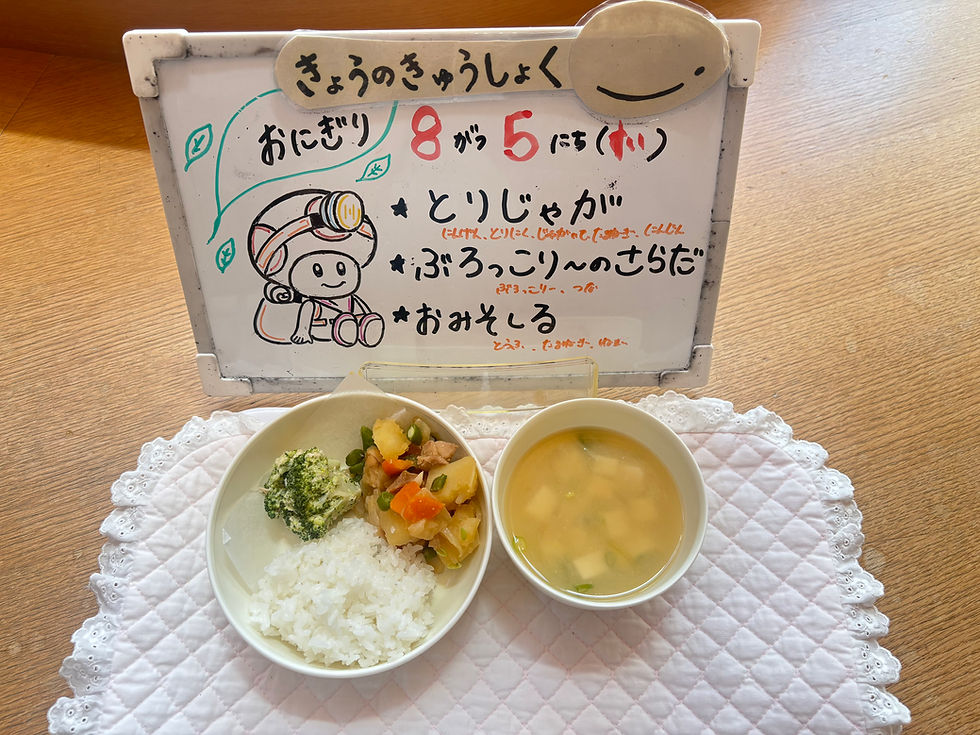 きょうのきゅうしょく
おにぎり 8がつ5にち(か)
★とりじゃが
いんげん、とりにく、じゃがいも、たまねぎ、にんじん
★ぶろっこり〜のさらだ
ぶろっこりー、つな
★おみそしる
とうふ、たまねぎ、ねぎ